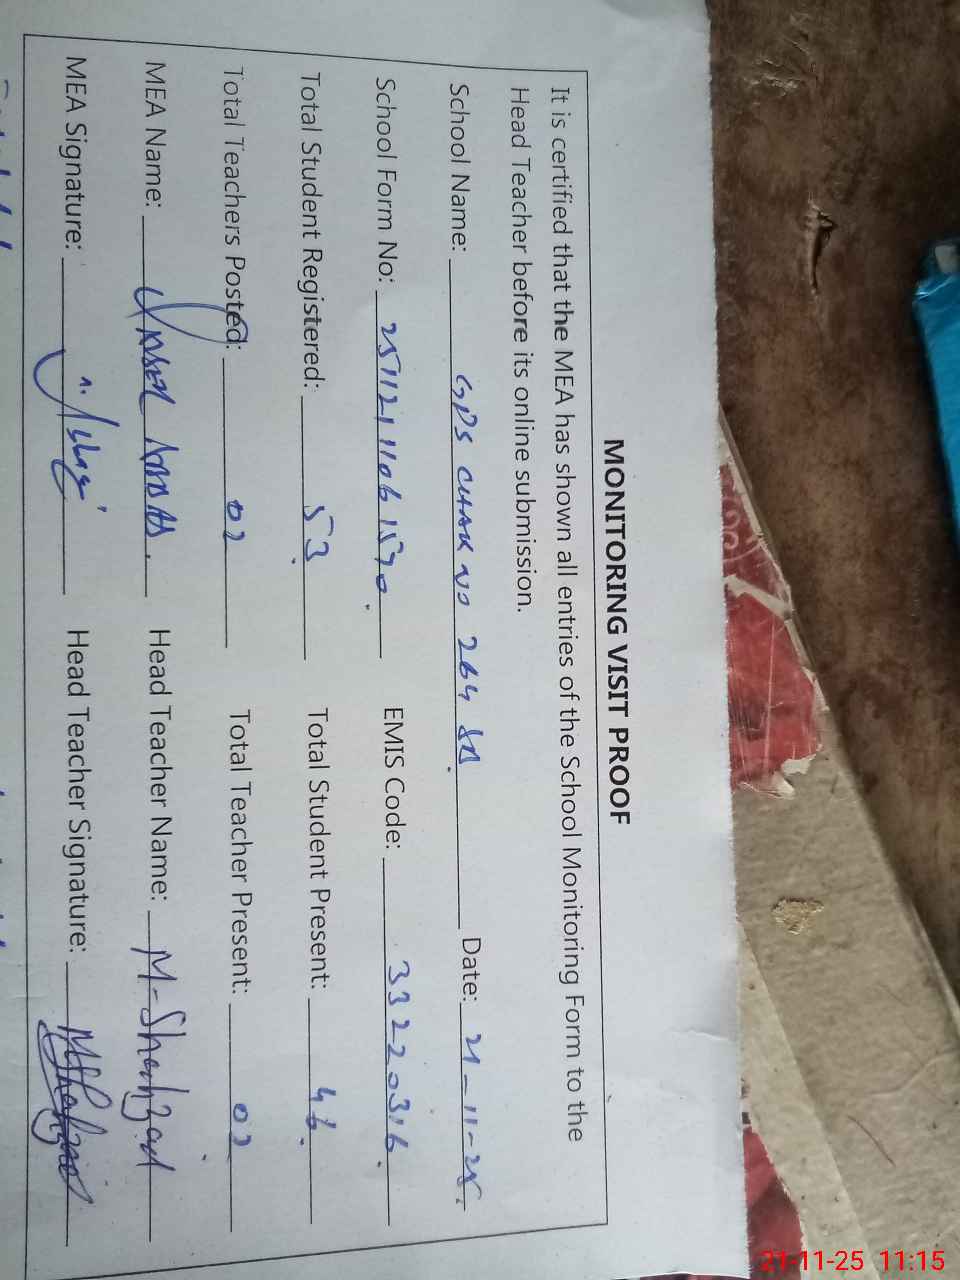 MONITORING VISIT PROOF
It is certified that the MEA has shown all entries of the School Monitoring Form to the
Head Teacher before its online submission.
School Name: GPS CHAK NO 264 Date: 21-11-25
School Form No: EMIS Code: 33220316
Total Student Registered: 53 Total Student Present: 46
Total Teachers Posted: 02 Total Teacher Present: 02
MEA Name: Head Teacher Name: M-Shahzad
MEA Signature: Head Teacher Signature: MShahzad
21-11-25 11:15